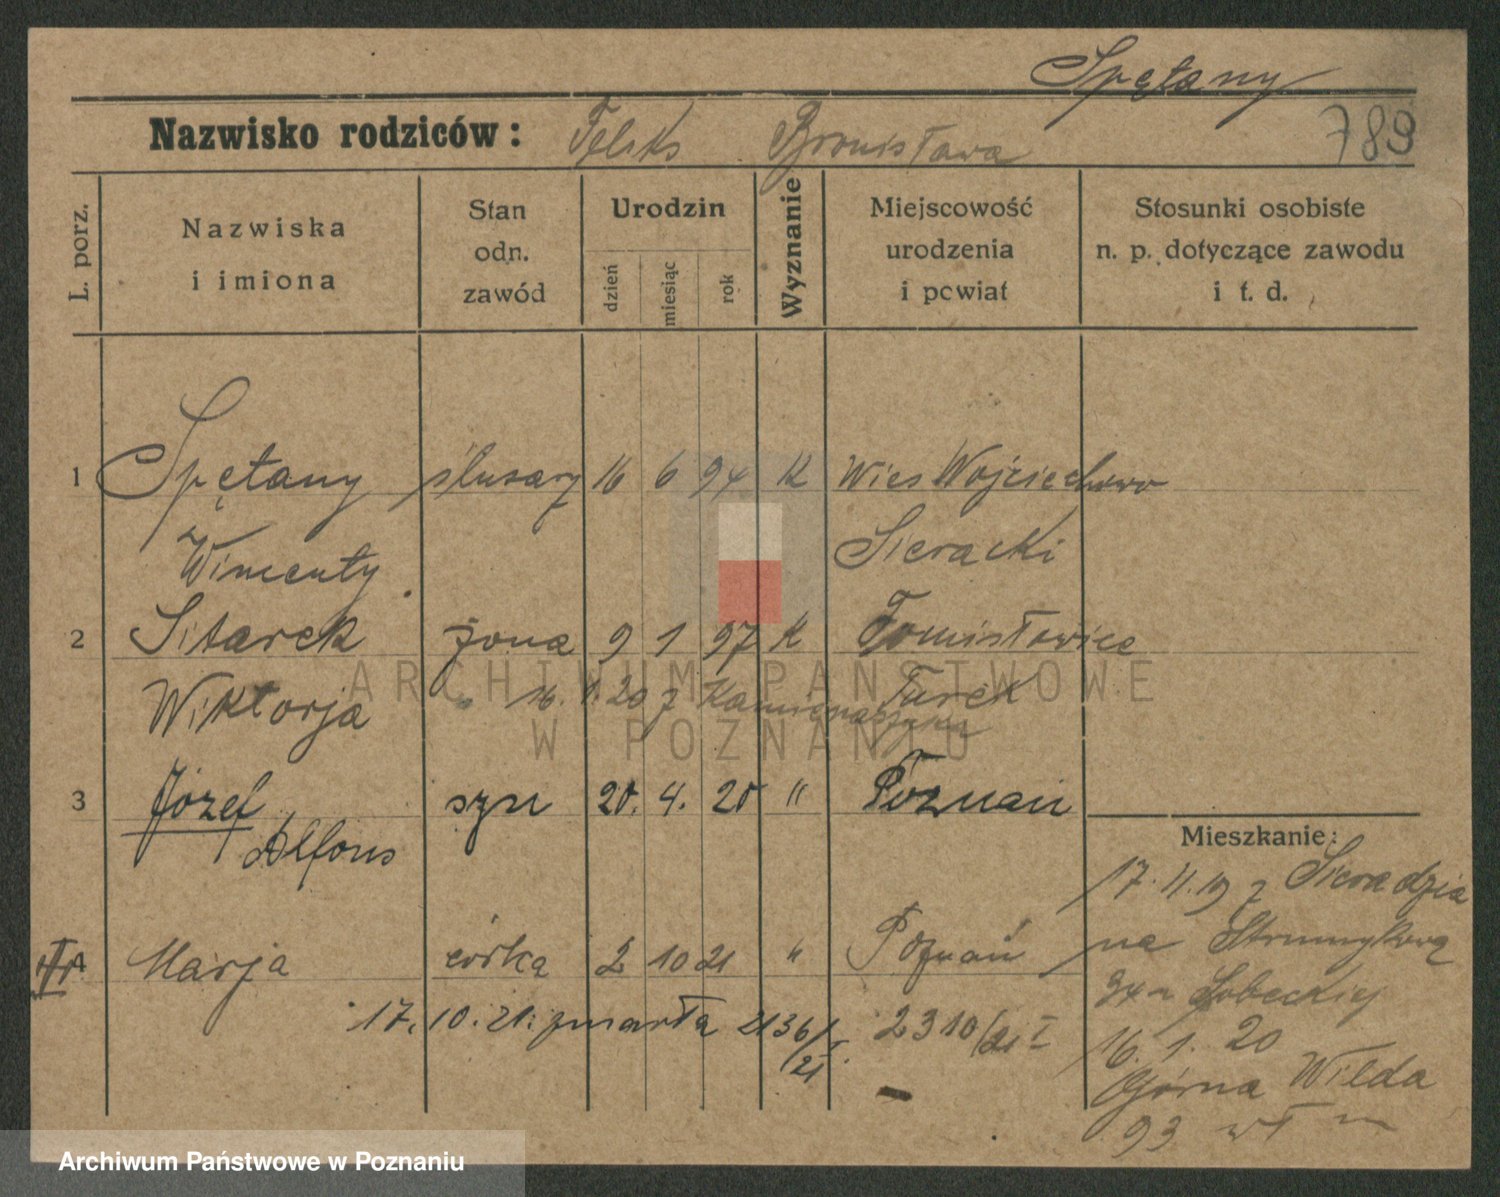 Spętany
Nazwisko rodziców: Feliks Bronisława 789
L. porz.
Nazwiska
i imiona
Stan
odn.
zawód
Urodzin
dzień
miesiąc
rok
Wyznanie
Miejscowość
urodzenia
i powiat
Stosunki osobiste
n. p. dotyczące zawodu
i t. d.
1 Spętany ślusarz 16 6 94 K Wies Wojciechowo
Wincenty Sieracki
2 Sitarek żona 9 1 97 K Tomisławice
Wiktorja Turek
" 16.1.20 z
3 Józef syn 20. 4. 20 " Poznań
Alfons
4 Marja córka 2 10 21 " Poznań
17. 10. 21. zmarła 2136/21 I. 2310/21 I
Mieszkanie:
17.11.19 z Sieradzia
na Strumykową
34 Sobeckiej
16. 1. 20
Górna Wilda
93 wł m
ARCHIWUM PAŃSTWOWE
W POZNANIU
Archiwum Państwowe w Poznaniu